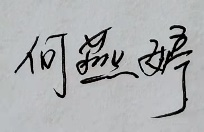 何燕婷